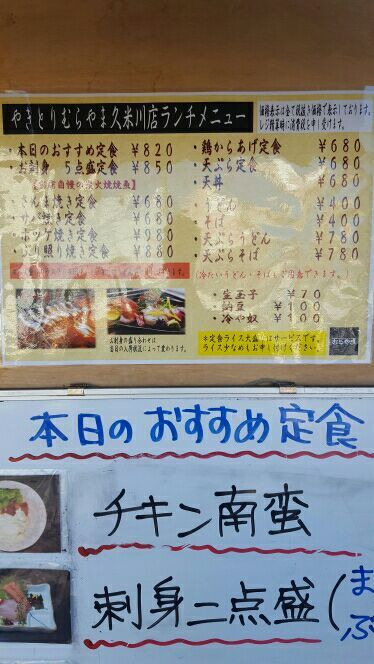 やきとりむらやま久米川店ランチメニュー
価格表示は全て税抜き価格で表示しております。
レジ精算時に消費税を申し受けます。
・本日のおすすめ定食 ￥820
・お刺身 5点盛定食 ￥850
【当店自慢の炭火焼焼魚】
・さんま焼き定食 ￥680
焼き定食 ￥680
・ホッケ焼き定食 ￥980
・ぶり照り焼き定食 ￥880
・鶏からあげ定食 ￥680
・天ぷら定食 ￥680
・天丼 ￥680
・うどん ￥400
・そば ￥400
・天ぷらうどん ￥780
・天ぷらそば ￥780
(冷たいうどん・そばもご用意できます。)
・生玉子 ￥70
・納豆 ￥100
・冷や奴 ￥100
お刺身の盛り合わせは
当日の入荷状況によって変わります。
*定食ライス大盛りはサービスです。
ライス少なめもお申し付けください。
むらやま
本日のおすすめ定食
チキン南蛮
刺身二点盛(
ま
ぶ